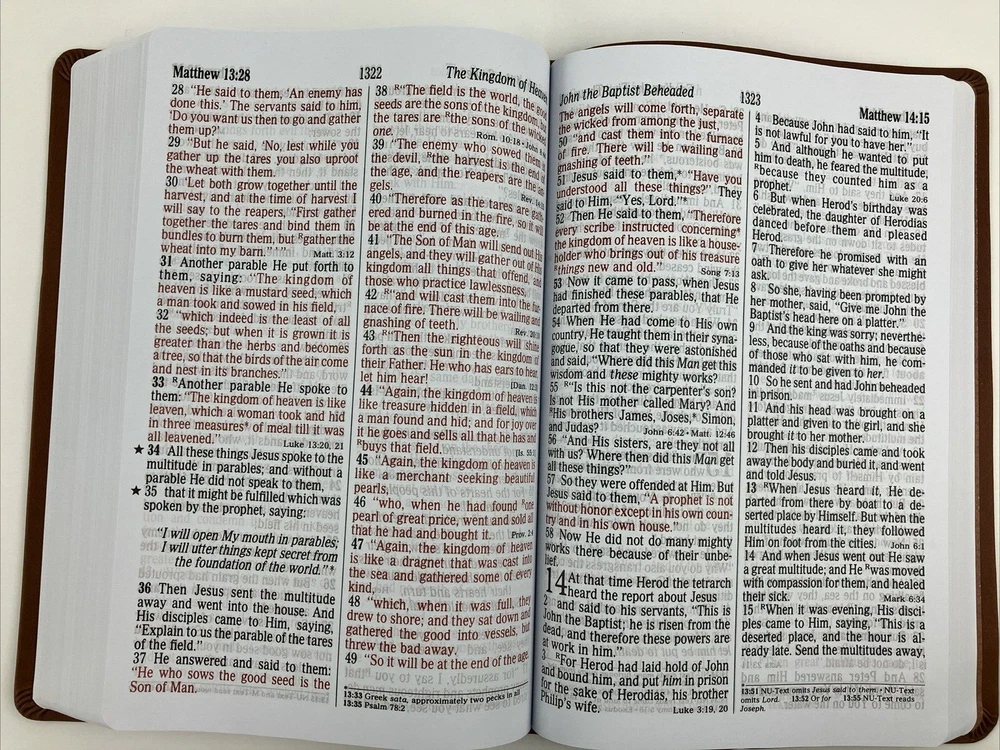 Matthew 13:28
1322
The Kingdom of Heaven
28 "He said to them, 'An enemy has
done this.' The servants said to him,
'Do you want us then to go and gather
them up?'
29 "But he said, 'No, lest while you
gather up the tares you also uproot
the wheat with them.
30 'Let both grow together until the
harvest, and at the time of harvest I
will say to the reapers, "First gather
together the tares and bind them in
bundles to burn them, but Rgather the
wheat into my barn." ' "
Matt. 3:12
31 Another parable He put forth to
them, saying: "The kingdom of
heaven is like a mustard seed, which
a man took and sowed in his field,
32 "which indeed is the least of all
the seeds; but when it is grown it is
greater than the herbs and becomes
a tree, so that the birds of the air come
and nest in its branches."
33 RAnother parable He spoke to
them: "The kingdom of heaven is like
leaven, which a woman took and hid
in three measures* of meal till it was
all leavened."
Luke 13:20, 21
★ 34 All these things Jesus spoke to the
multitude in parables; and without a
parable He did not speak to them,
★ 35 that it might be fulfilled which was
spoken by the prophet, saying:
"I will open My mouth in parables;
I will utter things kept secret from
the foundation of the world."*
36 Then Jesus sent the multitude
away and went into the house. And
His disciples came to Him, saying,
"Explain to us the parable of the tares
of the field."
37 He answered and said to them:
"He who sows the good seed is the
Son of Man.
38 R"The field is the world, the good
seeds are the sons of the kingdom,
the tares are Rthe sons of the wicked
one.
Rom. 10:18 • John
39 "The enemy who sowed them
the devil, Rthe harvest is the end of
the age, and the reapers are the an-
gels.
Rev.
40 "Therefore as the tares are gath-
ered and burned in the fire, so it will
be at the end of this age.
41 "The Son of Man will send out His
angels, and they will gather out of His
kingdom all things that offend, and
those who practice lawlessness,
42 R"and will cast them into the fur-
nace of fire. There will be wailing and
gnashing of teeth.
Rev.
43 R"Then the righteous will shine
forth as the sun in the kingdom of
their Father. He who has ears to hear,
let him hear!
[Dan. 12:3
44 "Again, the kingdom of heaven is
like treasure hidden in a field, which
a man found and hid; and for joy over
it he goes and sells all that he has and
Rbuys that field.
[Is. 55:
45 "Again, the kingdom of heaven is
like a merchant seeking beautiful
pearls,
46 "who, when he had found Rone
pearl of great price, went and sold all
that he had and bought it.
Prov.
47 "Again, the kingdom of heaven
is like a dragnet that was cast into
the sea and gathered some of every
kind,
48 "which, when it was full, they
drew to shore; and they sat down and
gathered the good into vessels, but
threw the bad away.
49 "So it will be at the end of the age.
13:33 Greek sata, approximately two pecks in all
13:35 Psalm 78:2
John the Baptist Beheaded
1323
Matthew 14:15
The angels will come forth, separate
the wicked from among the just,
50 "and cast them into the furnace
of fire. There will be wailing and
gnashing of teeth."
51 Jesus said to them,* "Have you
understood all these things?" They
said to Him, "Yes, Lord."*
52 Then He said to them, "Therefore
every scribe instructed concerning*
the kingdom of heaven is like a house-
holder who brings out of his treasure
Rthings new and old."
Song 7:13
53 Now it came to pass, when Jesus
had finished these parables, that He
departed from there.
54 When He had come to His own
country, He taught them in their syna-
gogue, so that they were astonished
and said, "Where did this Man get this
wisdom and these mighty works?
55 R"Is this not the carpenter's son?
Is not His mother called Mary? And
RHis brothers James, Joses,* Simon,
and Judas?
John 6:42 • Matt. 12:46
56 "And His sisters, are they not all
with us? Where then did this Man get
all these things?"
57 So they were offended at Him. But
Jesus said to them, "A prophet is not
without honor except in his own coun-
try and in his own house."
58 Now He did not do many mighty
works there because of their unbe-
lief.
14 At that time Herod the tetrarch
heard the report about Jesus
2 and said to his servants, "This is
John the Baptist; he is risen from the
dead, and therefore these powers are
at work in him."
3 RFor Herod had laid hold of John
and bound him, and put him in prison
for the sake of Herodias, his brother
Philip's wife.
Luke 3:19, 20
4 Because John had said to him, "It
is not lawful for you to have her."
5 And although he wanted to put
him to death, he feared the multitude,
Rbecause they counted him as a
prophet.
Luke 20:6
6 But when Herod's birthday was
celebrated, the daughter of Herodias
danced before them and pleased
Herod.
7 Therefore he promised with an
oath to give her whatever she might
ask.
8 So she, having been prompted by
her mother, said, "Give me John the
Baptist's head here on a platter."
9 And the king was sorry; neverthe-
less, because of the oaths and because
of those who sat with him, he com-
manded it to be given to her.
10 So he sent and had John beheaded
in prison.
11 And his head was brought on a
platter and given to the girl, and she
brought it to her mother.
12 Then his disciples came and took
away the body and buried it, and went
and told Jesus.
13 RWhen Jesus heard it, He de-
parted from there by boat to a de-
serted place by Himself. But when the
multitudes heard it, they followed
Him on foot from the cities.
John 6:1
14 And when Jesus went out He saw
a great multitude; and He Rwas moved
with compassion for them, and healed
their sick.
Mark 6:34
15 RWhen it was evening, His disci-
ples came to Him, saying, "This is a
deserted place, and the hour is al-
ready late. Send the multitudes away,
13:51 NU-Text omits Jesus said to them. • NU-Text
omits Lord. 13:52 Or for 13:55 NU-Text reads
Joseph.